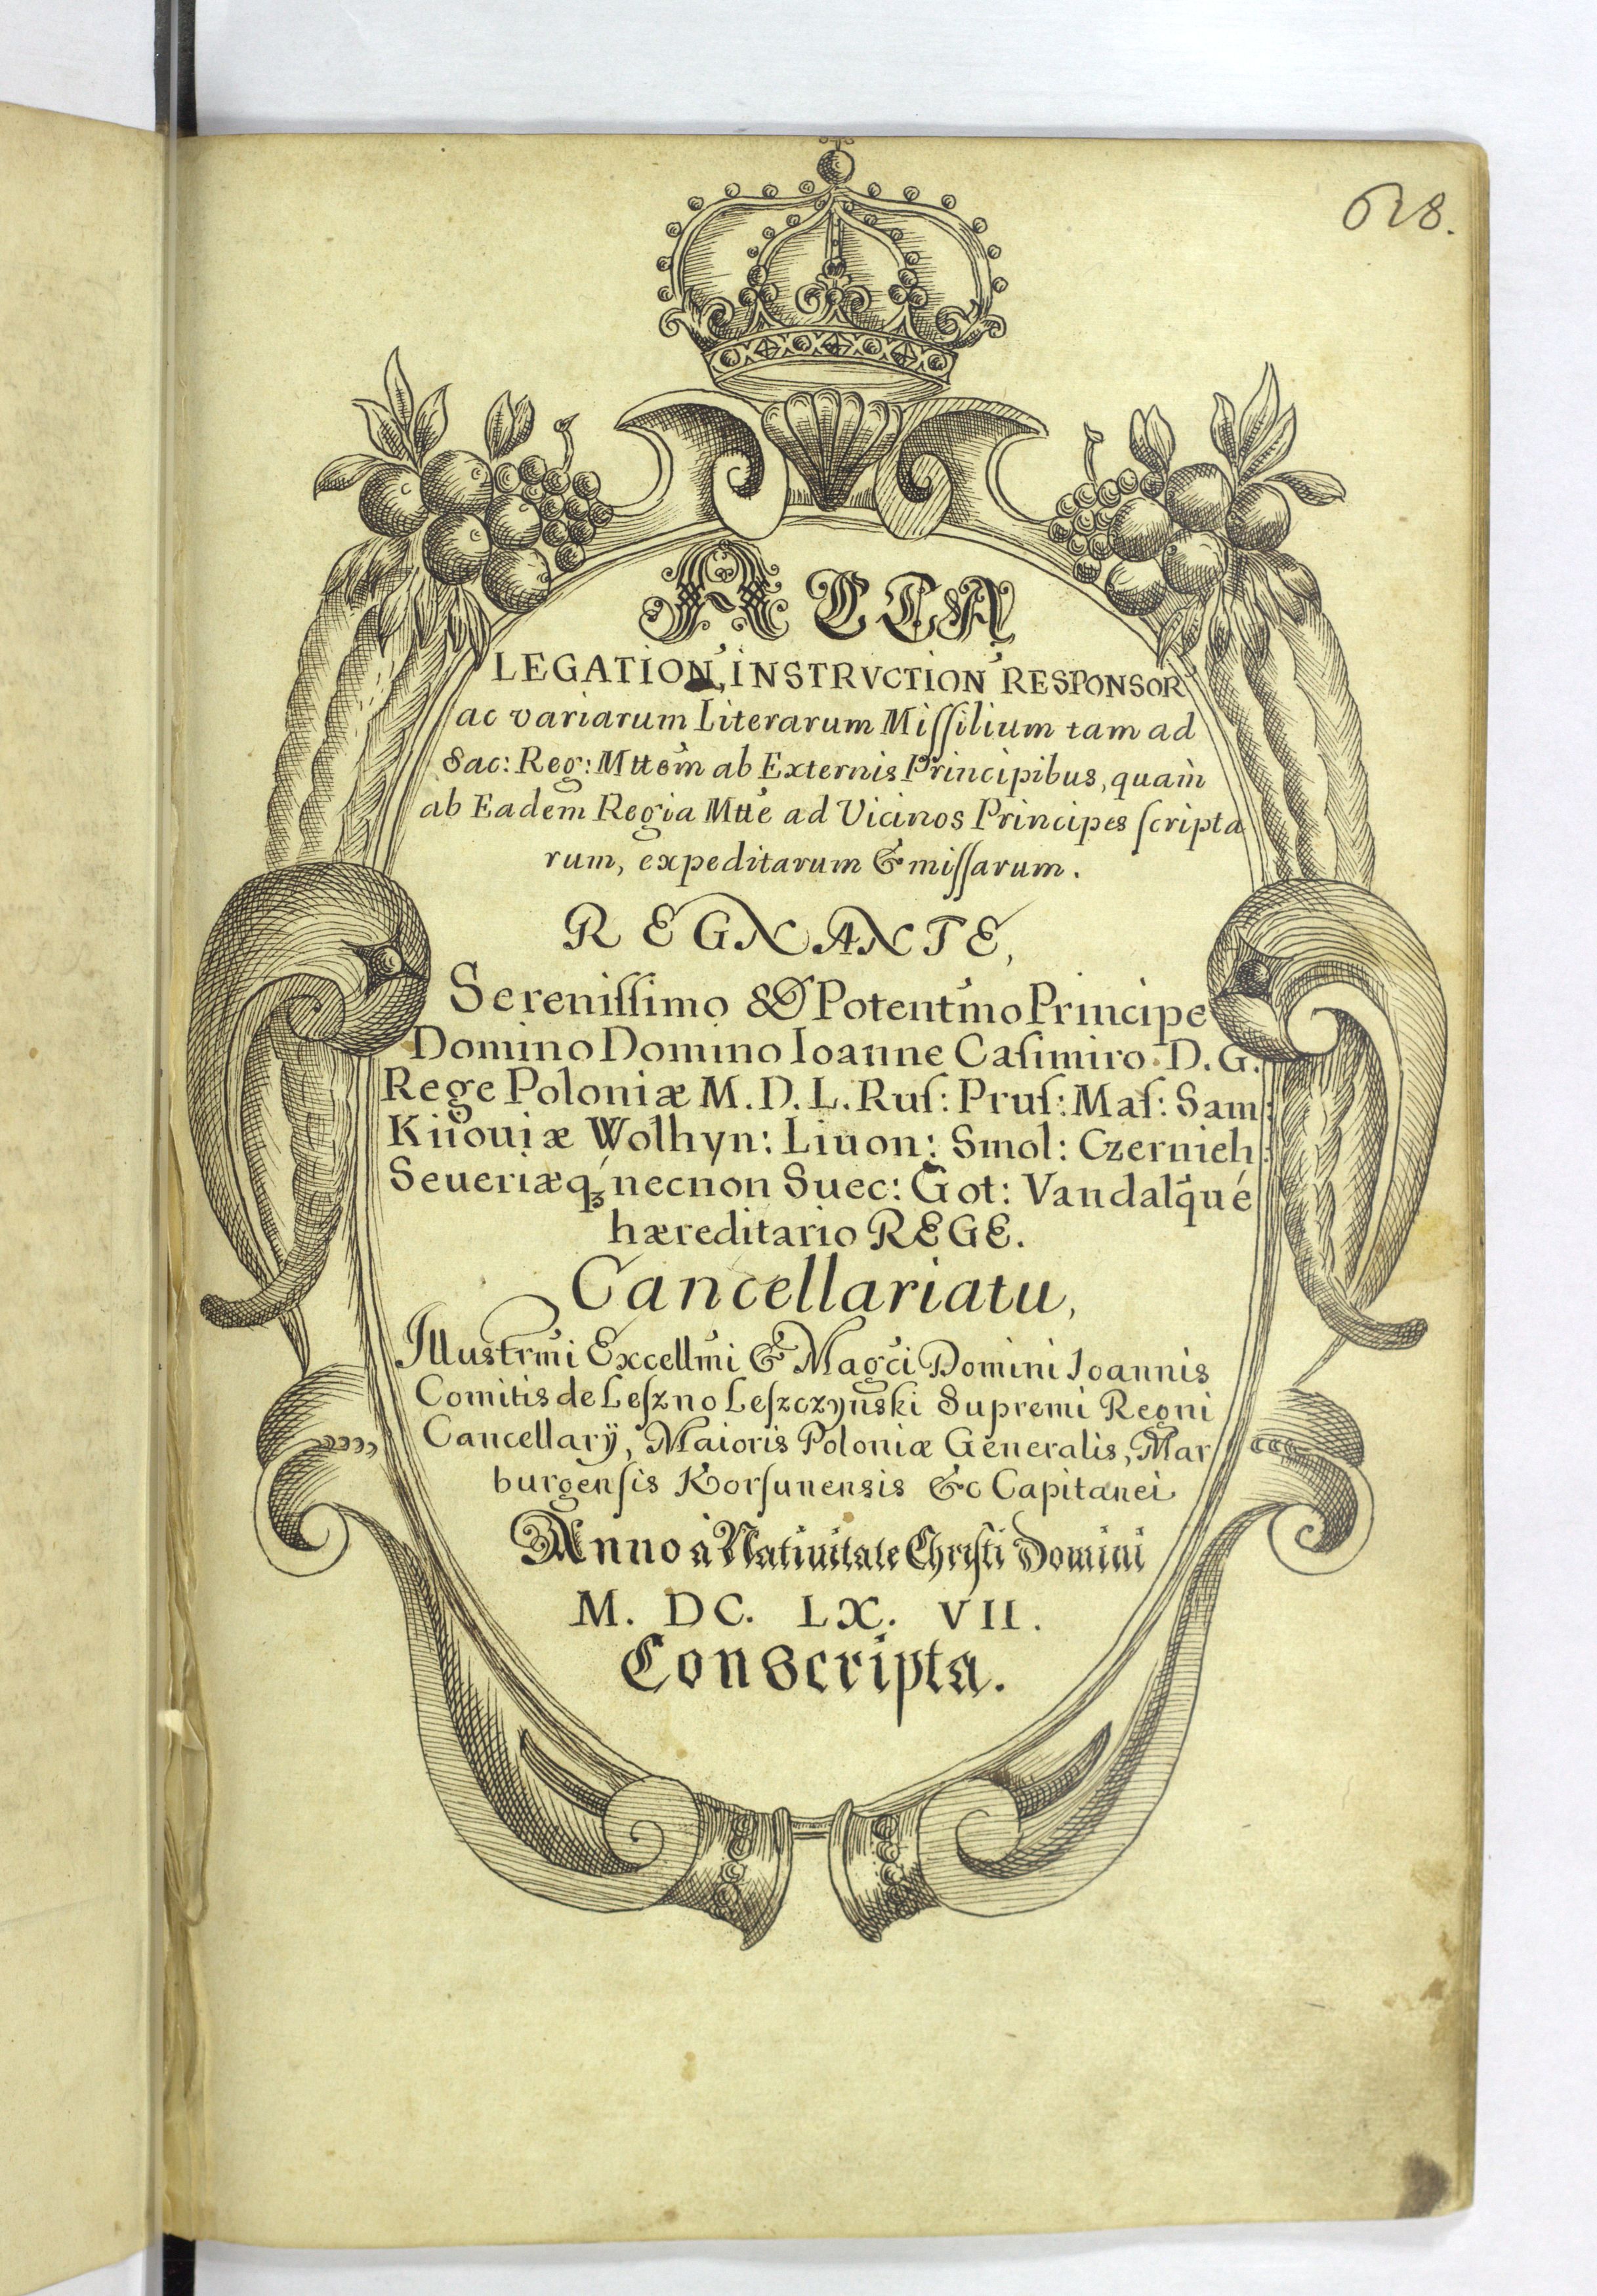 628.
ACTA
LEGATION, INSTRVCTION RESPONSOR
ac variarum Literarum Miſſilium tam ad
Sac: Reg: Mttem ab Externis Principibus, quam
ab Eadem Regia Mtte ad Vicinos Principes ſcripta
rum, expeditarum & miſſarum.
REGNANTE,
Sereniſſimo & Potentmo Principe
Domino Domino Ioanne Caſimiro D.G.
Rege Poloniæ M.D.L. Ruſ: Pruſ: Maſ: Sam:
Kiiouiæ Wolhyn: Liuon: Smol: Czernieh:
Seueriæqꝫ necnon Suec: Got: Vandalq́ué
hæreditario REGE.
Cancellariatu,
Illustrmi Excellmi & Magci Domini Ioannis
Comitis de Leſzno Leſzczyński Supremi Regni
Cancellarÿ, Maioris Poloniæ Generalis, Mar
burgenſis Korſunensis &c Capitanei
Anno à Natiuitate Chriſti Domini
M. DC. LX. VII.
Conscripta.